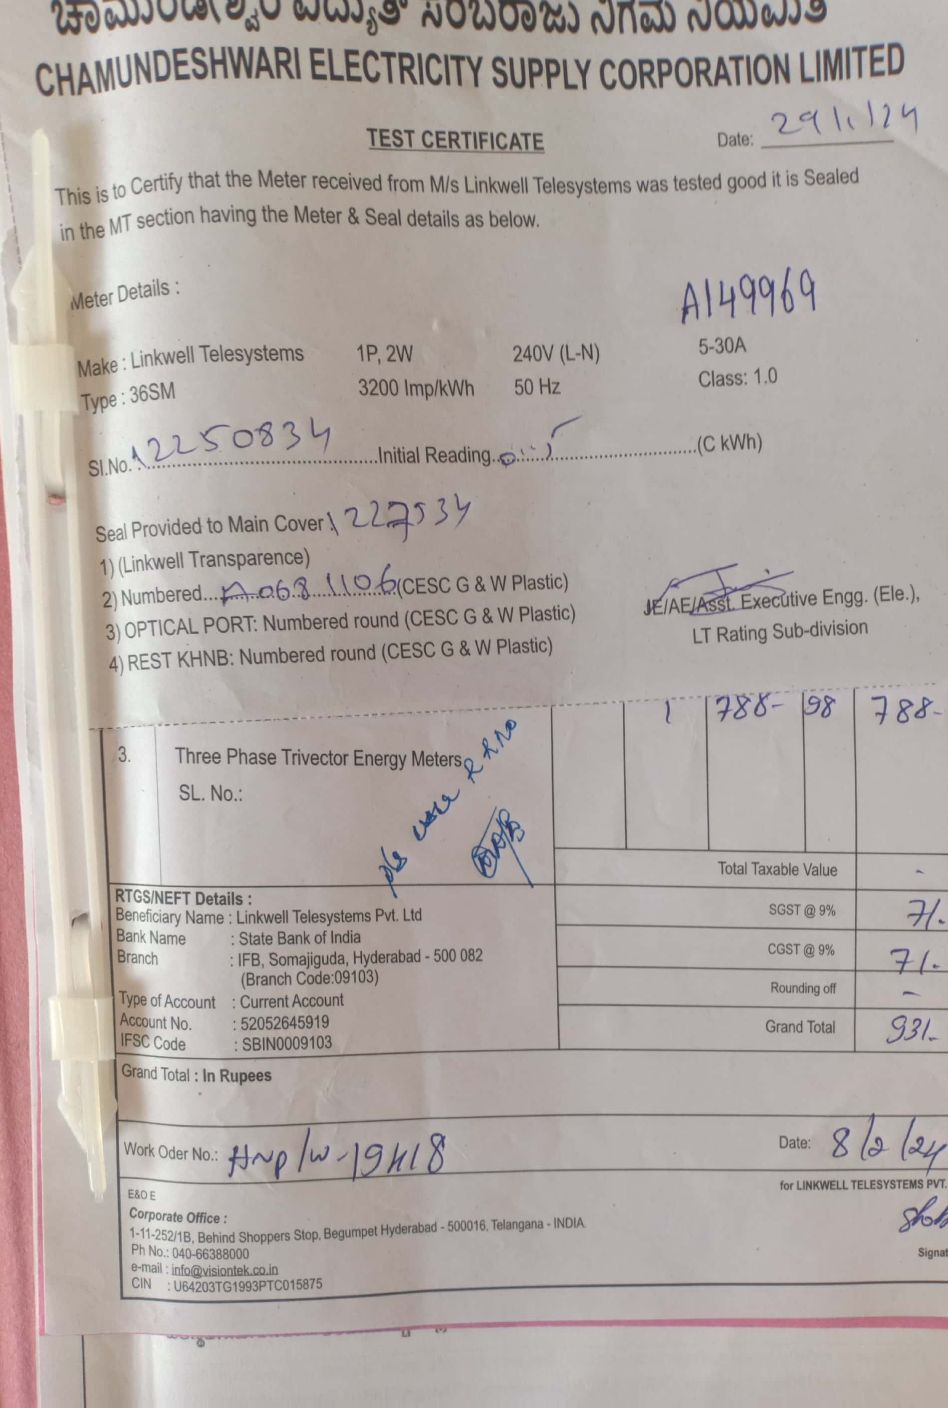 CHAMUNDESHWARI ELECTRICITY SUPPLY CORPORATION LIMITED
TEST CERTIFICATE
Date: 29/1/24
This is to Certify that the Meter received from M/s Linkwell Telesystems was tested good it is Sealed
in the MT section having the Meter & Seal details as below.
Meter Details :
A149969
Make : Linkwell Telesystems 1P, 2W 240V (L-N) 5-30A
Type : 36SM 3200 Imp/kWh 50 Hz Class: 1.0
Sl.No. 12250834 Initial Reading (C kWh)
Seal Provided to Main Cover
1) (Linkwell Transparence)
2) Numbered A0681106 (CESC G & W Plastic)
3) OPTICAL PORT: Numbered round (CESC G & W Plastic)
4) REST KHNB: Numbered round (CESC G & W Plastic)
JE/AE/Asst. Executive Engg. (Ele.),
LT Rating Sub-division
1 788- 98 788-
3. Three Phase Trivector Energy Meters
SL. No.:
Total Taxable Value -
SGST @ 9% 71/-
CGST @ 9% 71/-
Rounding off -
Grand Total 931-
RTGS/NEFT Details :
Beneficiary Name : Linkwell Telesystems Pvt. Ltd
Bank Name : State Bank of India
Branch : IFB, Somajiguda, Hyderabad - 500 082
(Branch Code:09103)
Type of Account : Current Account
Account No. : 52052645919
IFSC Code : SBIN0009103
Grand Total : In Rupees
Work Oder No.: HNP/W-19418
Date: 8/2/24
for LINKWELL TELESYSTEMS PVT.
E&O E
Corporate Office :
1-11-252/1B, Behind Shoppers Stop, Begumpet Hyderabad - 500016, Telangana - INDIA.
Ph No.: 040-66388000
e-mail : info@visiontek.co.in
CIN : U64203TG1993PTC015875
Signat